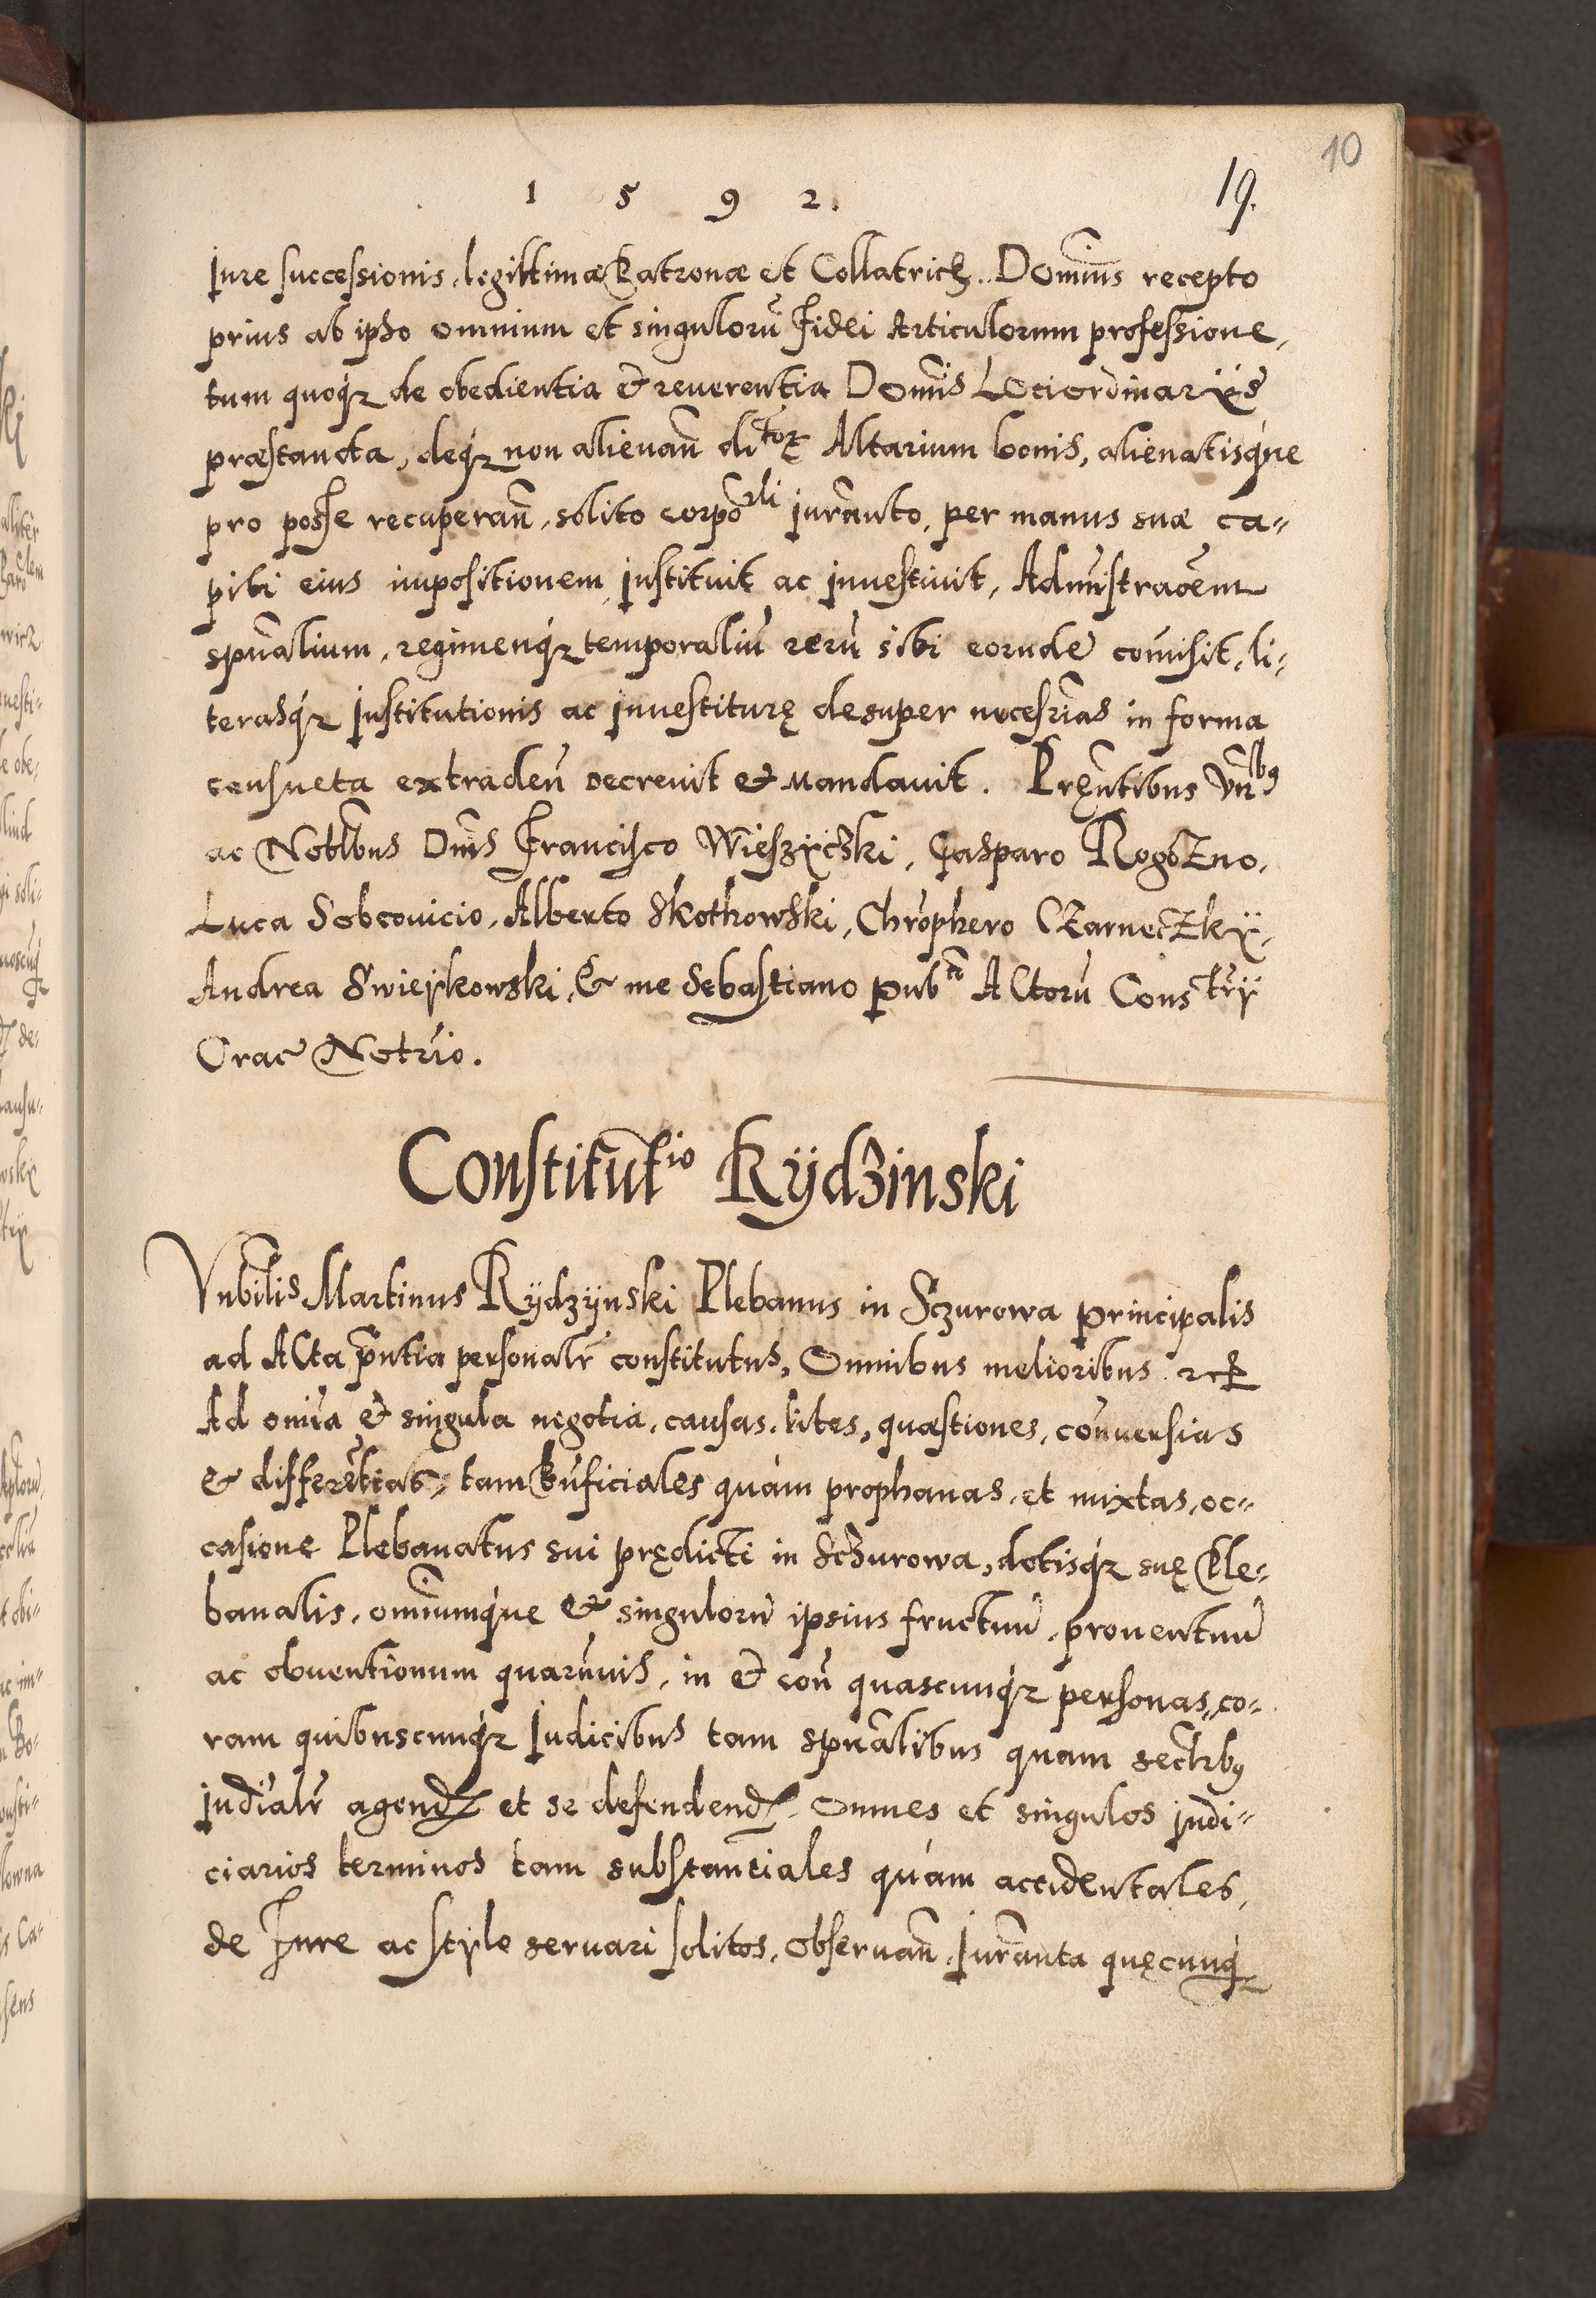 10
1 5 9 2.
19.
Jure successionis, legittimæ Patronæ et Collatricis. Dominus recepto
prius ab ipso omnium et singulorū Fidei Articulorum professione,
tum quoqꝫ de obedientia et reuerentia Domīs Loci ordinarijs
præstanda, deqꝫ non alienan̄ di^ctorꝫ Altarium bonis, alienatisque
pro posse recuperan̄, solito corpo^rli juram̄nto, per manus suæ ca=
piti eius impositionem, instituit ac inuestiuit, Admīstraōem
spūalium, regimenqꝫ temporaliū rerū sibi eorundē comīsit, li=
terasqꝫ Institutionis ac Inuestiturę desuper necessrias in forma
consueta extraden̄ decreuit et mandauit. Pręntibus Vn^bs
ac Nobilbus Dnīs Francisco Wieszyczki, Gasparo Rogozno,
Luca Sobcouicio, Alberto Skothowski, Chrophero Czarneczky,
Andrea Swieykowski, & me Sebastiano pub^co Actorū Cons^trij
Crac Notrio.
Constitut^io Rydzinski
Vnbilis Martinus Rydzynski Plebanus in Sczurowa principalis
ad Acta pn̄tia personalr constitutus, Omnibus melioribus etc
Ad omīa et singula negotia, causas, lites, quæstiones, con̄uersias
& differētias, tam bn̄ficiales quàm prophanas, et mixtas, oc=
casione Plebanatus sui prędicti in Sczurowa, dotisqꝫ suę Ple=
banalis, omīumque & singulorū ipsius fructuū, prouentuū
ac obuentionum quarumuis, in et con̄ quascunqꝫ personas, co=
ram quibuscunqꝫ Judicibus tam spūalibus quam seclrbꝫ
judīalr agend et se defendend, omnes et singulos judi=
ciarios terminos tam substantiales quàm accidentales,
de Jure ac stylo seruari solitos, obseruan̄, Juram̄nta quęcunqꝫ